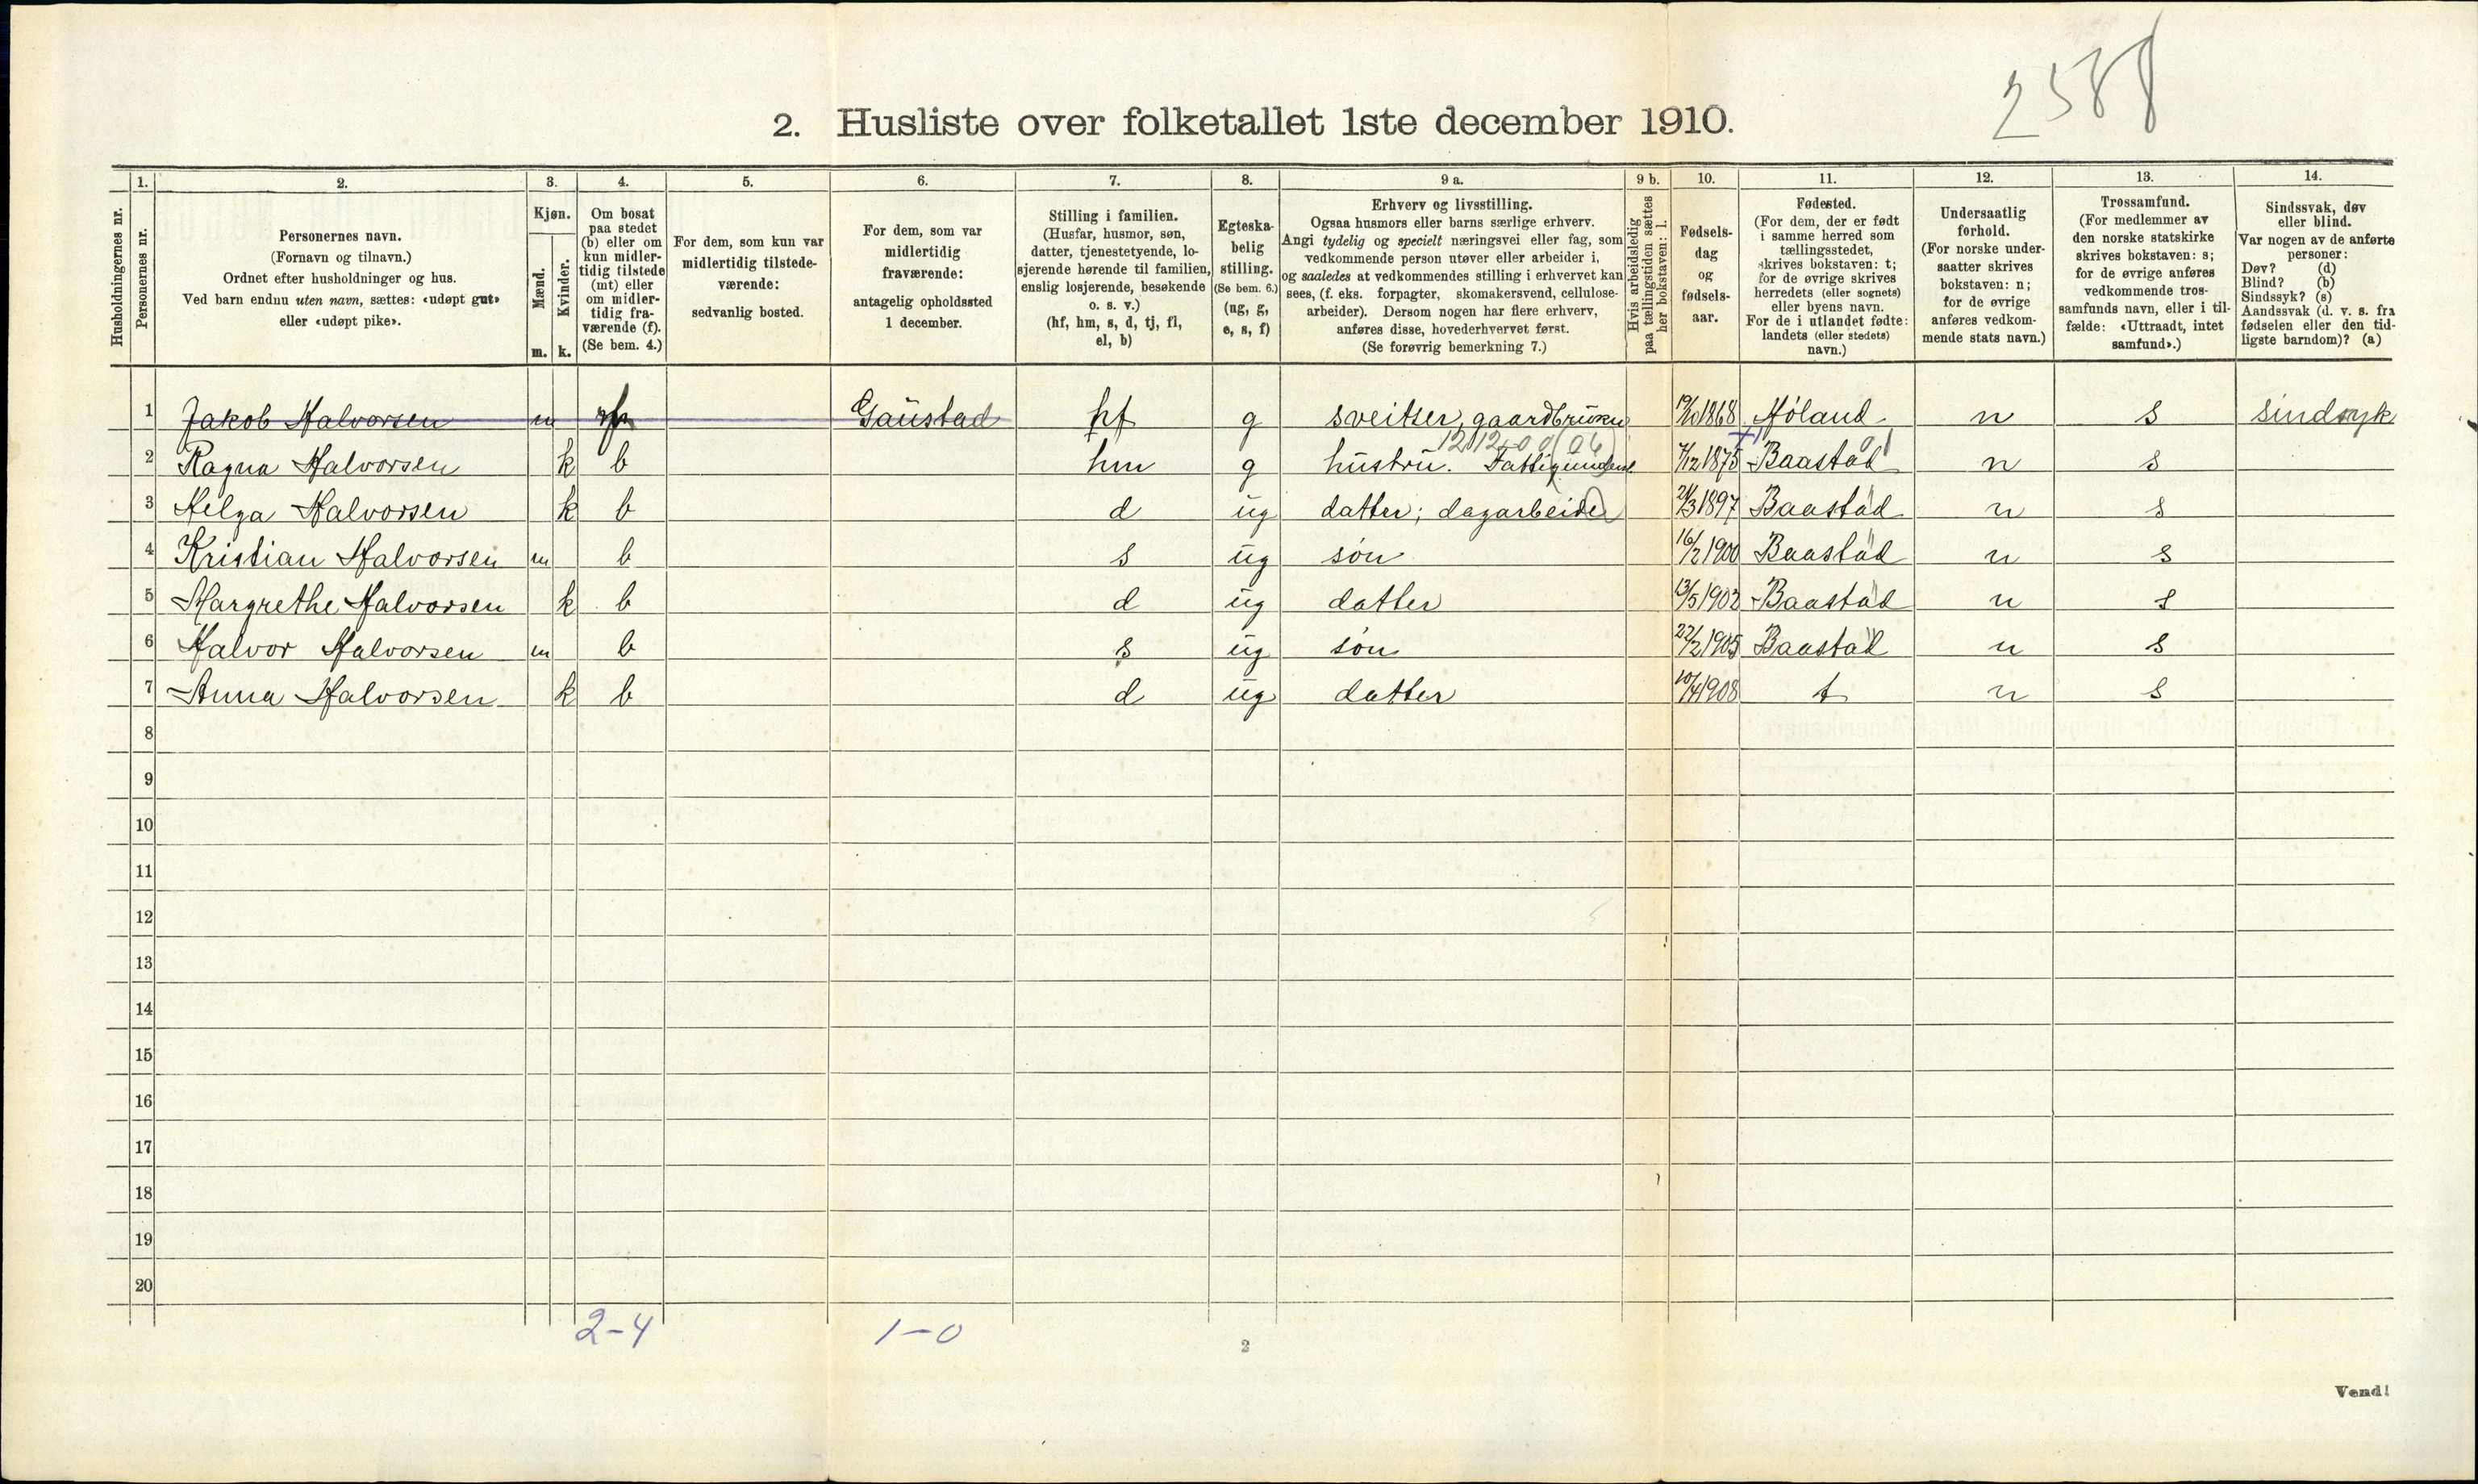 2588
2. Husliste over folketallet 1ste december 1910.
1. 2. 3. 4. 5. 6. 7. 8. 9 a. 9 b. 10. 11. 12. 13. 14.
Husholdningernes nr.
Personernes nr.
Personernes navn.
(Fornavn og tilnavn.)
Ordnet efter husholdninger og hus.
Ved barn endnu uten navn, sættes: «udøpt gut»
eller «udøpt pike».
Kjøn.
Mænd.
Kvinder.
m. k.
Om bosat
paa stedet
(b) eller om
kun midler-
tidig tilstede
(mt) eller
om midler-
tidig fra-
værende (f).
(Se bem. 4.)
For dem, som kun var
midlertidig tilstede-
værende:
sedvanlig bosted.
For dem, som var
midlertidig
fraværende:
antagelig opholdssted
1 december.
Stilling i familien.
(Husfar, husmor, søn,
datter, tjenestetyende, lo-
sjerende hørende til familien,
enslig losjerende, besøkende
o. s. v.)
(hf, hm, s, d, tj, fl,
el, b)
Egteska-
belig
stilling.
(Se bem. 6.)
(ug, g,
e, s, f)
Erhverv og livsstilling.
Ogsaa husmors eller barns særlige erhverv.
Angi tydelig og specielt næringsvei eller fag, som
vedkommende person utøver eller arbeider i,
og saaledes at vedkommendes stilling i erhvervet kan
sees, (f. eks. forpagter, skomakersvend, cellulose-
arbeider). Dersom nogen har flere erhverv,
anføres disse, hovederhvervet først.
(Se forøvrig bemerkning 7.)
Hvis arbeidsledig
paa tællingstiden sættes
her bokstaven: l.
Fødsels-
dag
og
fødsels-
aar.
Fødested.
(For dem, der er født
i samme herred som
tællingsstedet,
skrives bokstaven: t;
for de øvrige skrives
herredets (eller sognets)
eller byens navn.
For de i utlandet fødte:
landets (eller stedets)
navn.)
Undersaatlig
forhold.
(For norske under-
saatter skrives
bokstaven: n;
for de øvrige
anføres vedkom-
mende stats navn.)
Trossamfund.
(For medlemmer av
den norske statskirke
skrives bokstaven: s;
for de øvrige anføres
vedkommende tros-
samfunds navn, eller i til-
fælde: «Uttraadt, intet
samfund».)
Sindssvak, døv
eller blind.
Var nogen av de anførte
personer:
Døv? (d)
Blind? (b)
Sindssyk? (s)
Aandssvak (d. v. s. fra
fødselen eller den tid-
ligste barndom)? (a)
1 Jakob Halvorsen m Gaustad hf g sveitser, gaardbruker 1868 Høland n s sindsyk
2 Ragna Halvorsen k b hm g hustru. 7/12 1875 Baastad n s
3 Helga Halvorsen k b d ug datter; dagarbeide 1897 Baastad n s
4 Kristian Halvorsen m b s ug søn 16/2 1900 Baastad n s
5 Margrethe Halvorsen k b d ug datter 13/5 1902 Baastad n s
6 Halvor Halvorsen m b s ug søn 22/2 1905 Baastad n s
7 Anna Halvorsen k b d ug datter 10/4 1908 t n s
8
9
10
11
12
13
14
15
16
17
18
19
20
2-4 1-0
2
Vend!